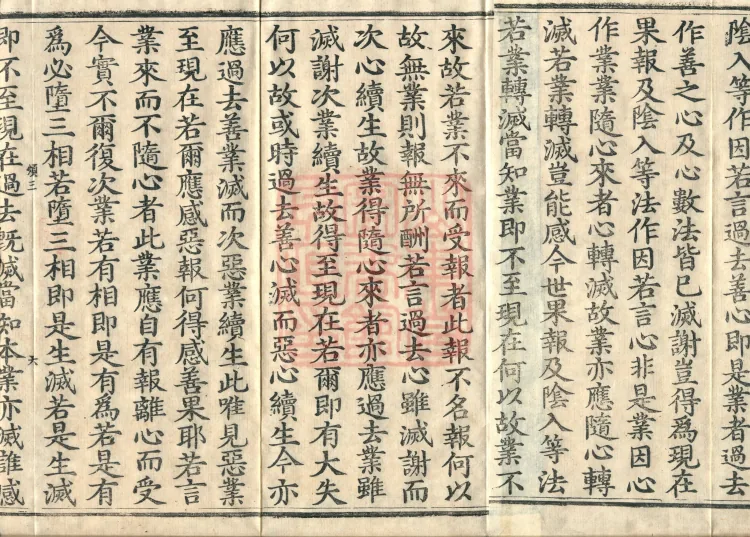 陰入等作因若言過去善心即是業者過去
作善之心及心數法皆已滅謝豈得為現在
果報及陰入等法作因若言心非是業因心
作業業隨心來者心轉滅故業亦應隨心轉
滅若業轉滅豈能感今世果報及陰入等法
若業轉滅當知業即不至現在何以故業不
來故若業不來而受報者此報不名報何以
故無業則報無所酬若言過去心雖滅謝而
次心續生故業得隨心來者亦應過去業雖
滅謝次業續生故得至現在若爾即有大失
何以故或時過去善心滅而惡心續生今亦
應過去善業滅而次惡業續生此唯見惡業
至現在若爾應感惡報何得感善果耶若言
業來而不隨心者此業應自有報離心而受
今實不爾復次業若有相即是有為若是有
為必墮三相若墮三相即是生滅若是生滅
六
即不至現在過去既滅當知本業亦滅誰感